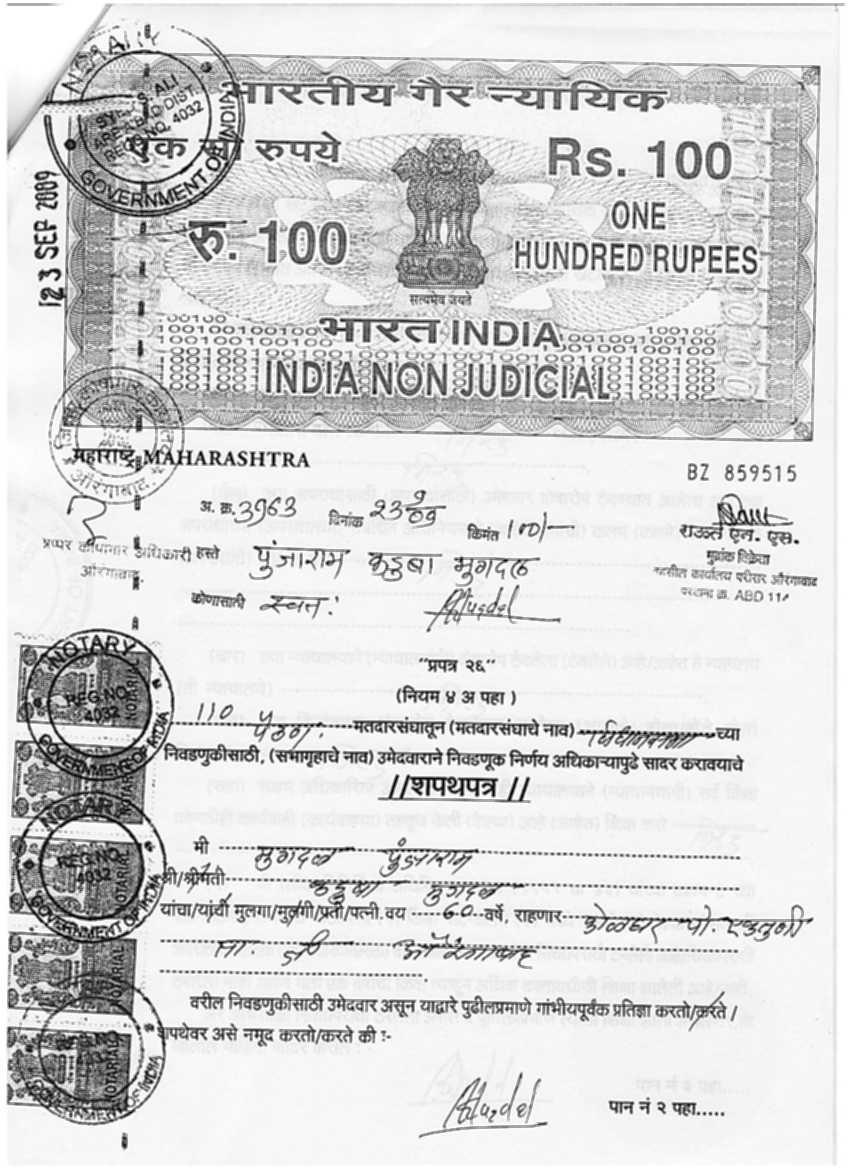 NOTARY
SYED S. ALI
DIST.
REG. NO. 4032
GOVERNMENT OF INDIA
23 SEP 2009
भारतीय गैर न्यायिक
एक सौ रुपये
Rs. 100
रु. 100
ONE
HUNDRED RUPEES
सत्यमेव जयते
भारत INDIA
INDIA NON JUDICIAL
महाराष्ट्र MAHARASHTRA
औरंगाबाद
BZ 859515
अ. क्र. 3963 दिनांक 23/09 किमंत 100/-
राऊत एन. एस.
मुद्रांक विक्रेता
तहसील कार्यालय परिसर औरंगाबाद
परवाना क्र. ABD 11
अप्पर कोषागार अधिकारी हस्ते पुंजाराम कडुबा मुगदल
औरंगाबाद.
कोणासाठी स्वतः
"प्रपत्र २६"
(नियम ४ अ पहा )
110 पैठण मतदारसंघातून (मतदारसंघाचे नाव) विधानसभा च्या
निवडणुकीसाठी, (सभागृहाचे नाव) उमेदवाराने निवडणूक निर्णय अधिकाऱ्यापुढे सादर करावयाचे
//शपथपत्र //
मी मुगदल पुंजाराम
श्री/श्रीमती कडुबा मुगदल
यांचा/यांची मुलगा/मुलगी/प्रती/पत्नी. वय 60 वर्षे, राहणार
ता. जी औरंगाबाद
वरील निवडणुकीसाठी उमेदवार असून याद्वारे पुढीलप्रमाणे गांभीयपूर्वक प्रतिज्ञा करतो/करते।
शपथेवर असे नमूद करतो/करते की :-
पान नं २ पहा.....
NOTARY
REG. NO.
4032
GOVERNMENT OF INDIA
NOTARIAL
NOTARY
REG. NO.
4032
GOVERNMENT OF INDIA
NOTARIAL
NOTARIAL
GOVERNMENT OF INDIA